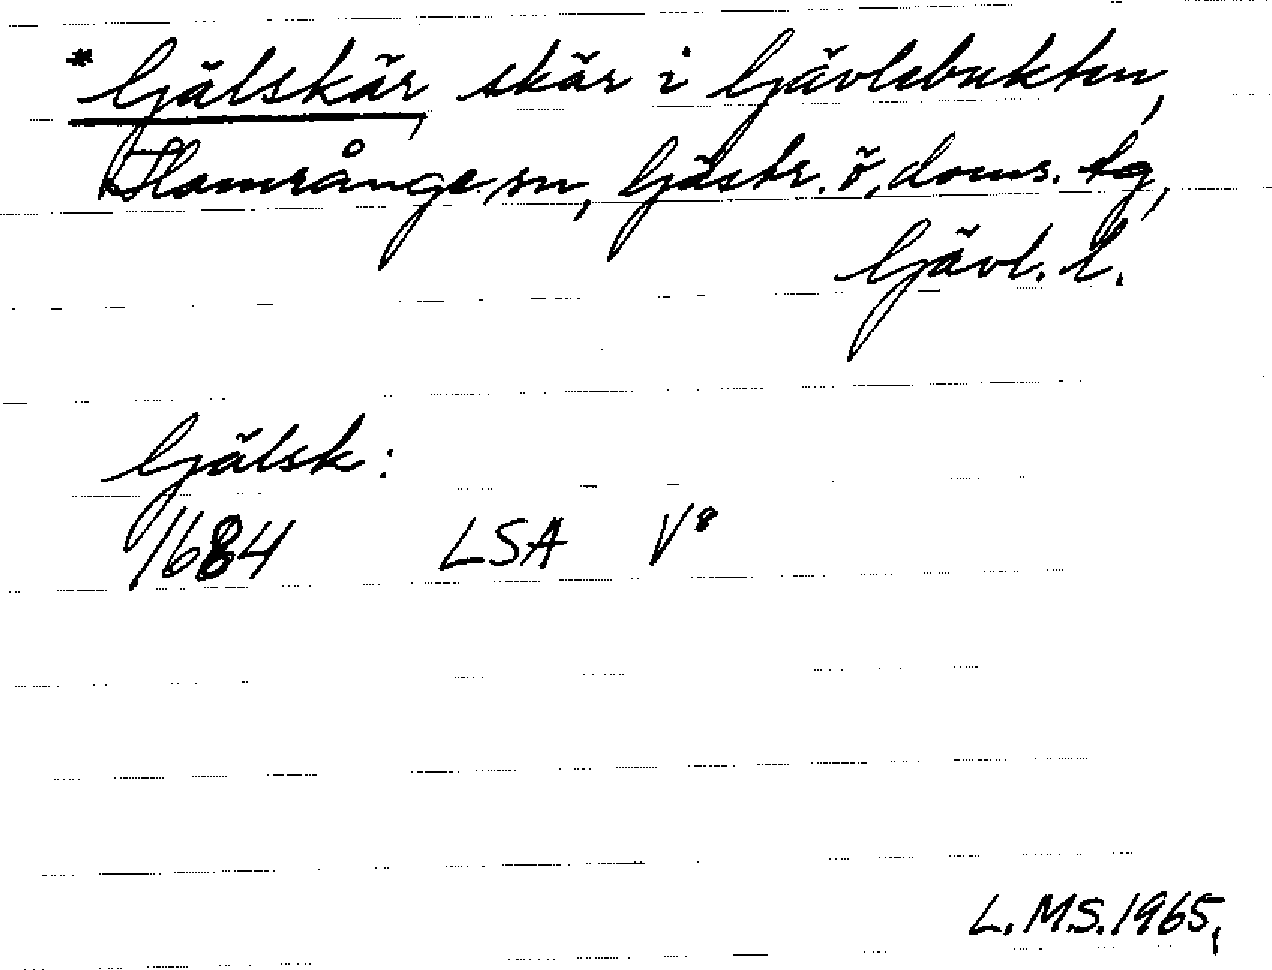 *Gjälskär, skär i Gjävlebukten,
Hamrånge sn, Gästr. ö. doms. tg,
Gävl. l.
Gjälsk:
1684 LSA V⁸
L.M.S. 1965.